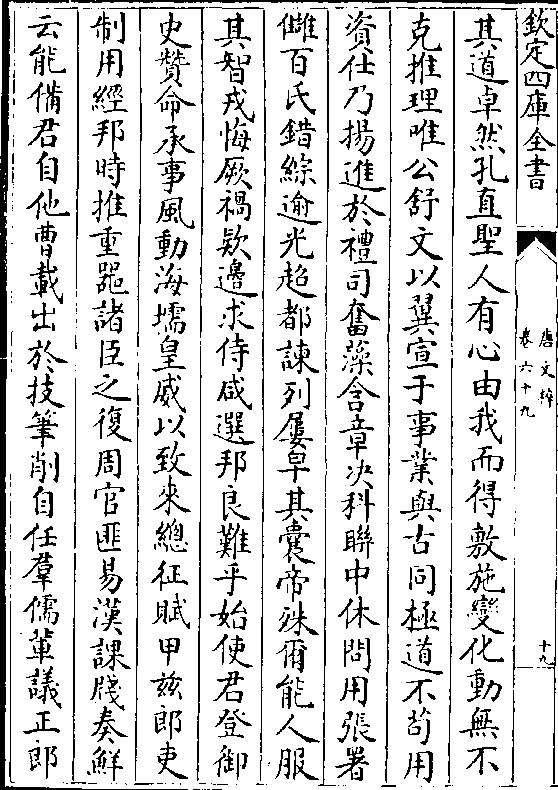 欽定四庫全書
唐文粹
卷六十九
十九
其道卓然孔直聖人有心由我而得敷施變化動無不
克推理唯公舒文以翼宣于事業與古同極道不苟用
資仕乃揚進於禮司奮藻含章决科聯中休問用張署
讎百氏錯綜逾光超都諫列屢皁其囊帝殊爾能人服
其智戎悔厥禍款邊求侍咸選邦良難乎始使君登御
史贊命承事風動海壖皇威以致來總征賦甲兹郎吏
制用經邦時推重噐諸臣之復周官匪易漢課牋奏鮮
云能備君自他曹載出於技筆削自任羣儒革議正郎